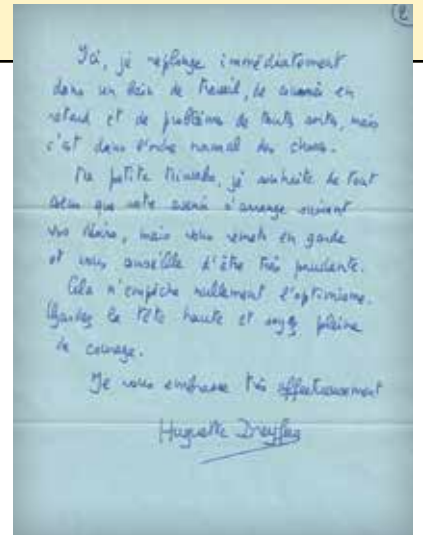 2
Ici, je replonge immédiatement
dans un bain de travail, de courrier en
retard et de problèmes de toutes sortes, mais
c'est dans l'ordre normal des choses.
Ma petite, je souhaite de tout
cœur que votre avenir s'arrange suivant
vos désirs, mais vous mets en garde
et vous conseille d'être très prudente.
Cela n'empêche nullement l'optimisme.
Gardez la tête haute et soyez pleine
de courage.
Je vous embrasse très affectueusement
Huguette Dreyfus